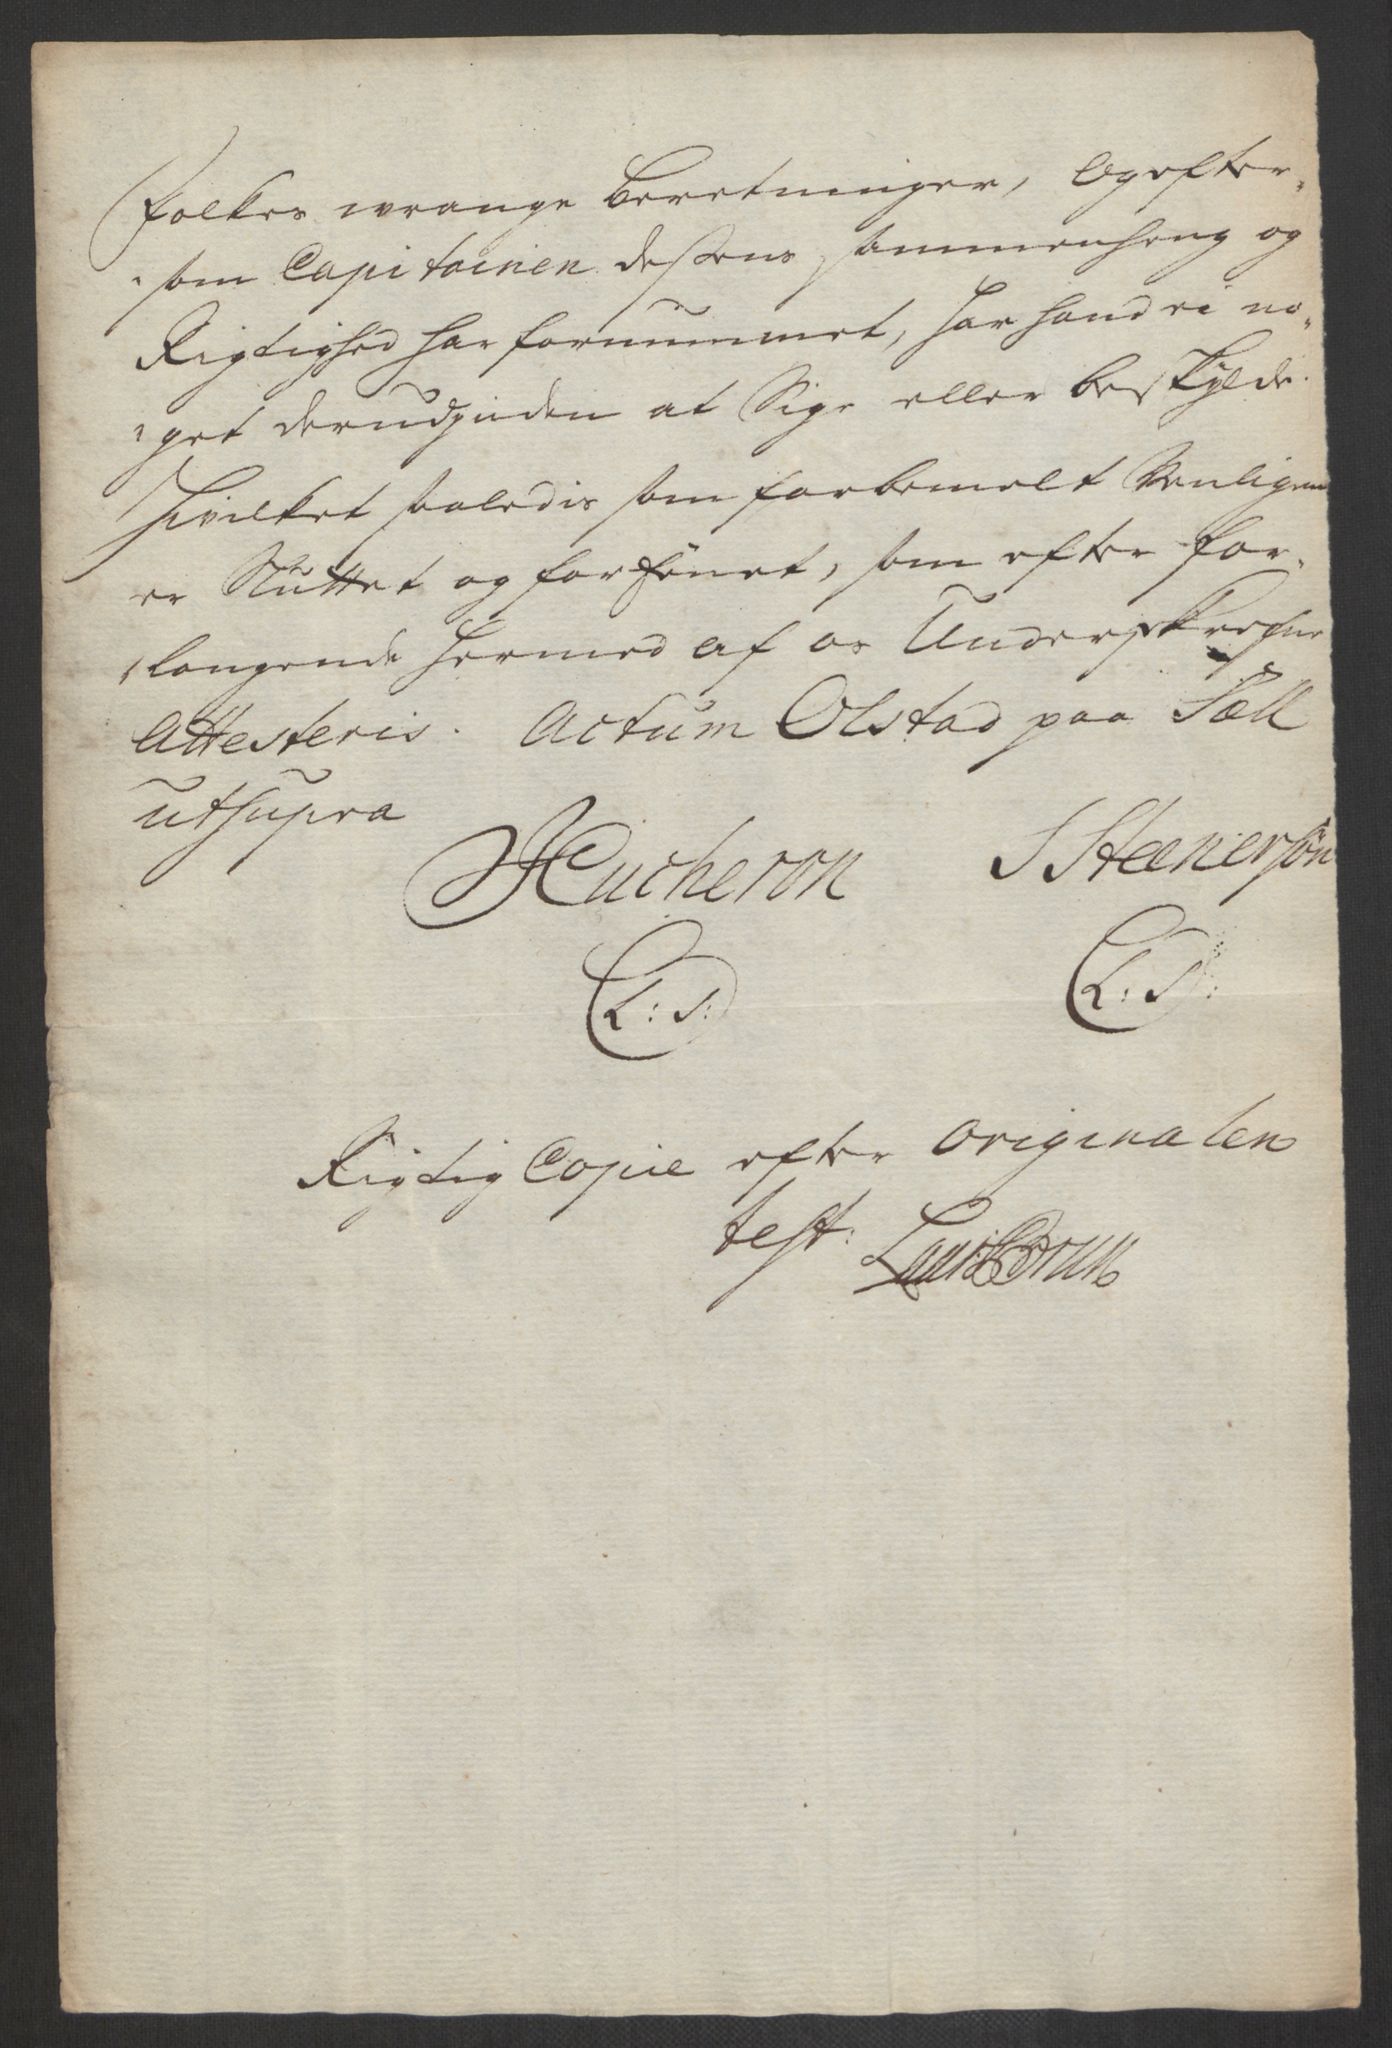 folkes wrange beretninger, Og efter-
-som Capitainen dessens sammenheng og
Rigtighed har fornummet, har hand ei no-
-get derudjnden at Sige eller beskylde.
Hvilket saaledis som forbemelt Venligen
er Sluttet og forsönet, som efter for-
-langende hermed af os Underskrefne
Attesteris. Actum Olstad paa Tæll
ut supra
HCucheron SSteenersön
L: S: L: S:
Rigtig Copie efter Originalen
test: LauritzBrun